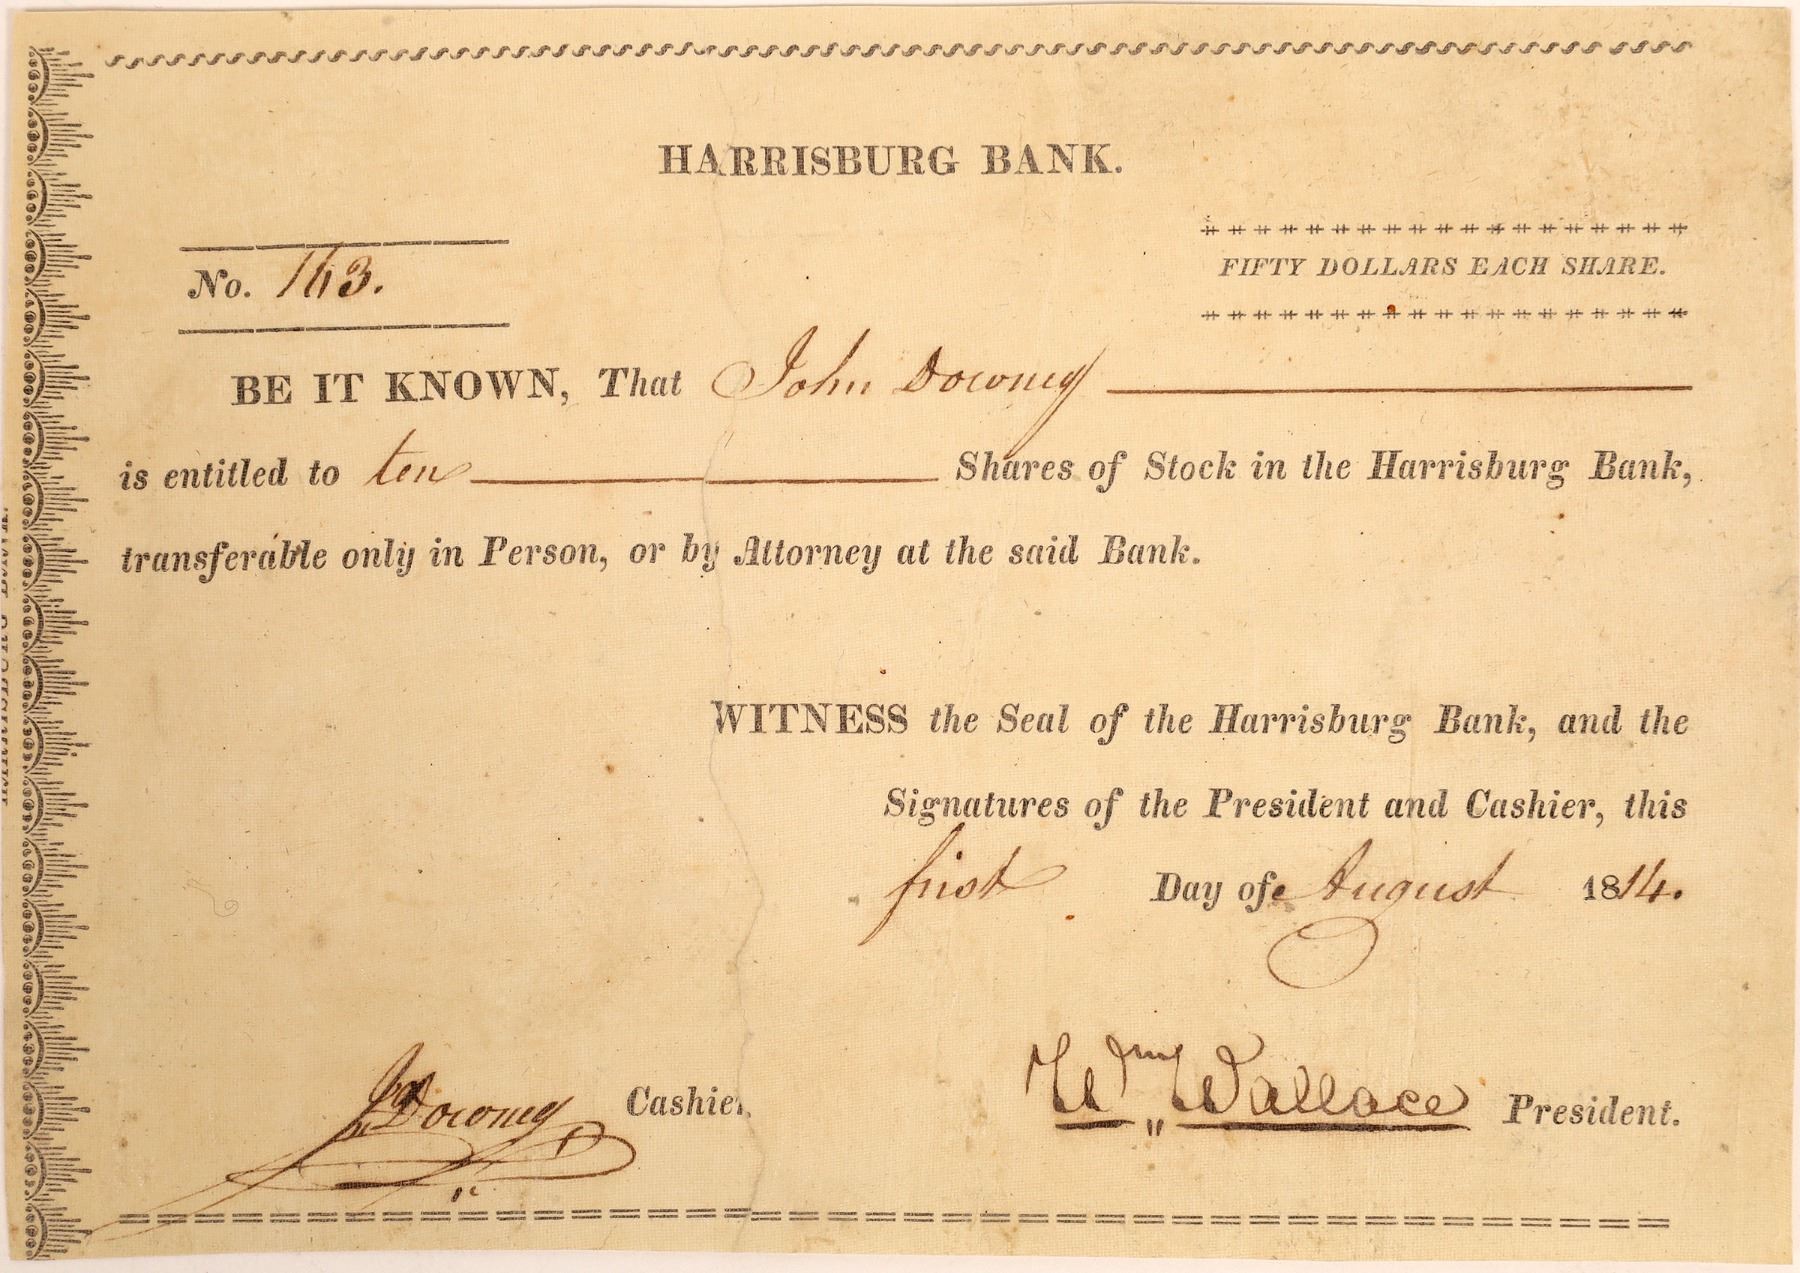 HARRISBURG BANK.
No. 163.
FIFTY DOLLARS EACH SHARE.
BE IT KNOWN, That John Downey
is entitled to ten Shares of Stock in the Harrisburg Bank,
transferable only in Person, or by Attorney at the said Bank.
WITNESS the Seal of the Harrisburg Bank, and the
Signatures of the President and Cashier, this
first Day of August 1814.
Jn Downey Cashier,
Wm Wallace President.